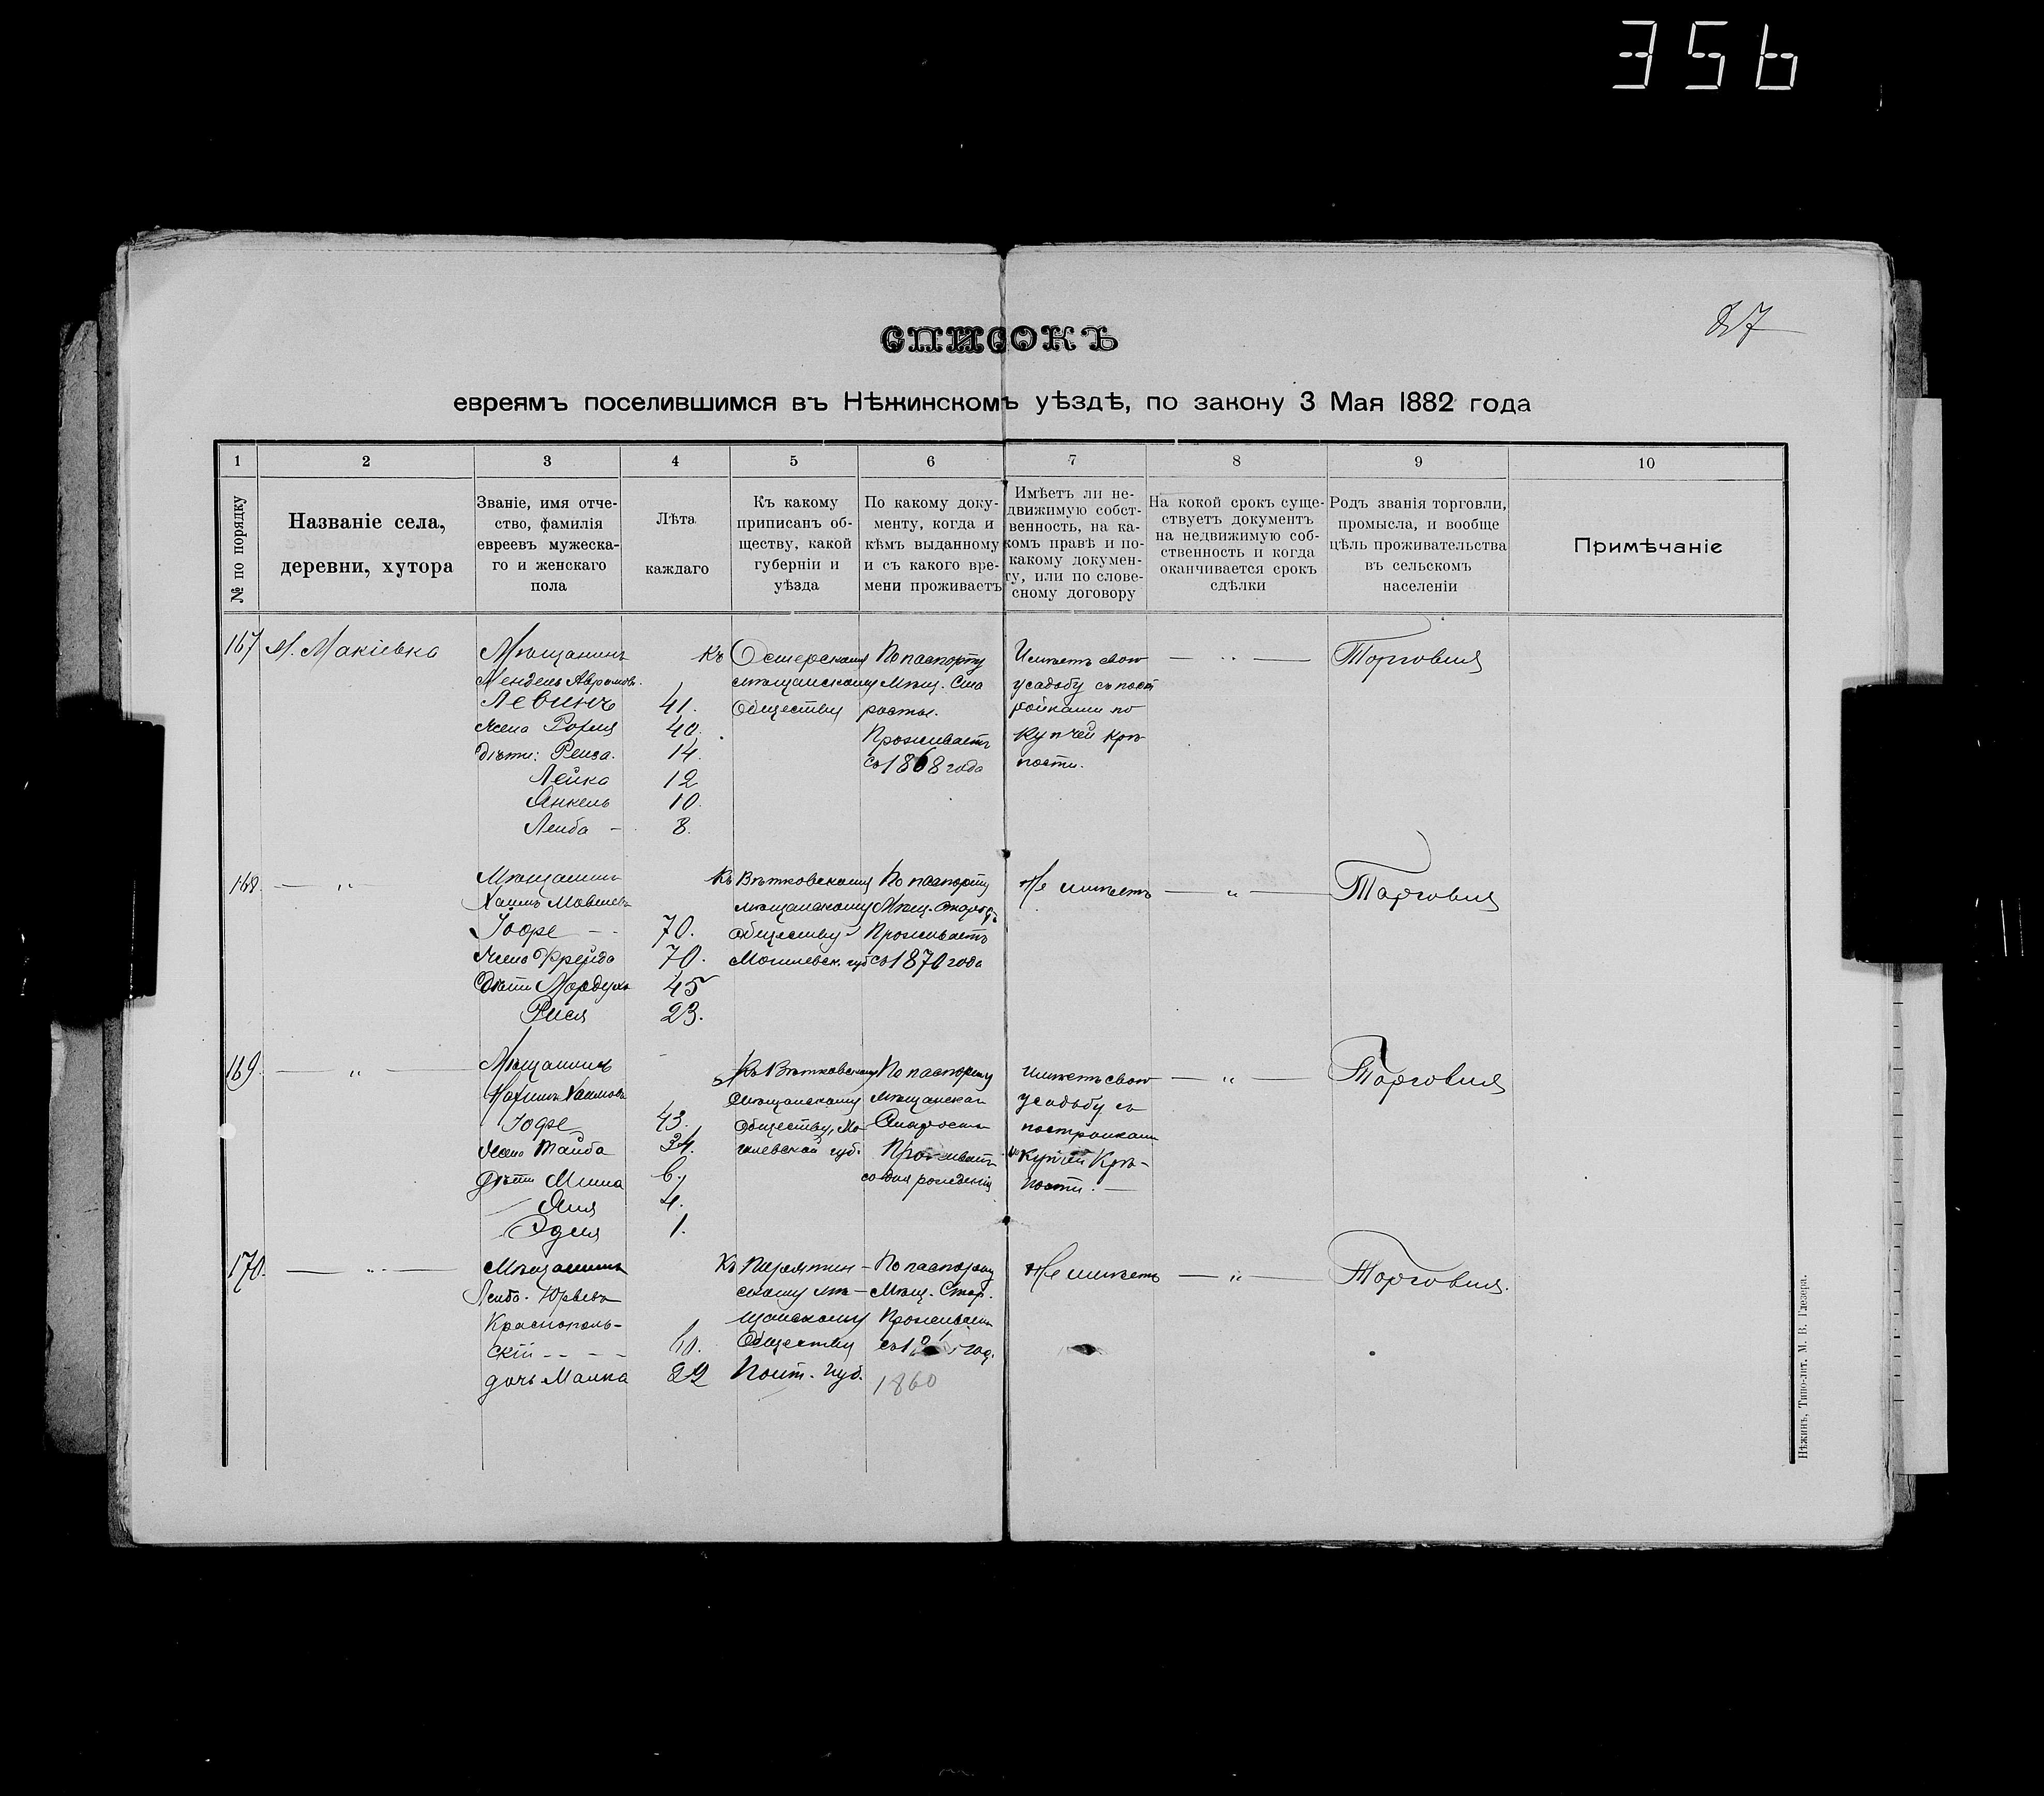 356
87
СПИСОКЪ
евреямъ поселившимся въ Нѣжинскомъ уѣздѣ, по закону 3 Мая 1882 года
1 2 3 4 5 6 7 8 9 10
№ по порядку
Названіе села,
деревни, хутора
Званіе, имя отче-
ство, фамилія
евреевъ мужеска-
го и женскаго
пола
Лѣта
каждаго
Къ какому
приписанъ об-
ществу, какой
губерніи и
уѣзда
По какому доку-
менту, когда и
кѣмъ выданному
и съ какого вре-
мени проживаетъ
Имѣетъ ли не-
движимую собст-
венность, на ка-
комъ правѣ и по-
какому докумен-
ту, или по слове-
сному договору
На кокой срокъ суще-
ствуетъ документъ
на недвижимую соб-
ственность и когда
оканчивается срокъ
сдѣлки
Родъ званія торговли,
промысла, и вообще
цѣль проживательства
въ сельскомъ
населеніи
Примѣчаніе
167
М. Макіевка
Мѣщанинъ
Мендель Аврамов.
Левинъ 41.
Жена Рофия 40.
Дѣти: Реиза. 14.
Лейка 12
Янкель 10.
Леиба - 8.
Къ Остерскому
мѣщанскому
Обществу
По паспорту
Мѣщ. Ста
росты.
Проживаетъ
съ 1868 года
Имѣетъ свою
усадьбу съ пост
ройками по
купчей крѣ
пости.
— " —
Торговля
168.
— " —
Мѣщанинъ
Хаимъ Мовшевъ
Іофе - - 70.
Жена Фрейда 70.
Дѣти Мордухъ 45
Рися 23.
Къ Вѣтковскому
мѣщанскому
обществу
Могилевск. губ
По паспорту
Мѣщ.
Проживаетъ
съ 1870 года
Не имѣетъ
— " —
Торговля
169.
— " —
Мѣщанинъ
Хаимовъ
Іофе 43.
Жена Тайба 34.
Дѣти Мина 6.
4.
1.
Къ Вѣтковскому
Мѣщанскому
обществу, Мо-
гилевской губ.
По паспорту
мѣщанскаго
Старосты
Проживаетъ
со дня рожденія
Имѣетъ свою
усадьбу съ
постройками
по купчей Крѣ-
пости. —
— " —
Торговля
170.
— " —
Мѣщанинъ
Лейба
Краснополь-
скій - - - 60.
дочь Малка 22
Къ Пирятин-
скому мѣ-
щанскому
Обществу
Полт. губ.
По паспорту
Мѣщ. Стар.
Проживаетъ
год.
1860
Не имѣетъ
— " —
Торговля.
Нѣжинъ, Типо-лит. М. В. Глезера.